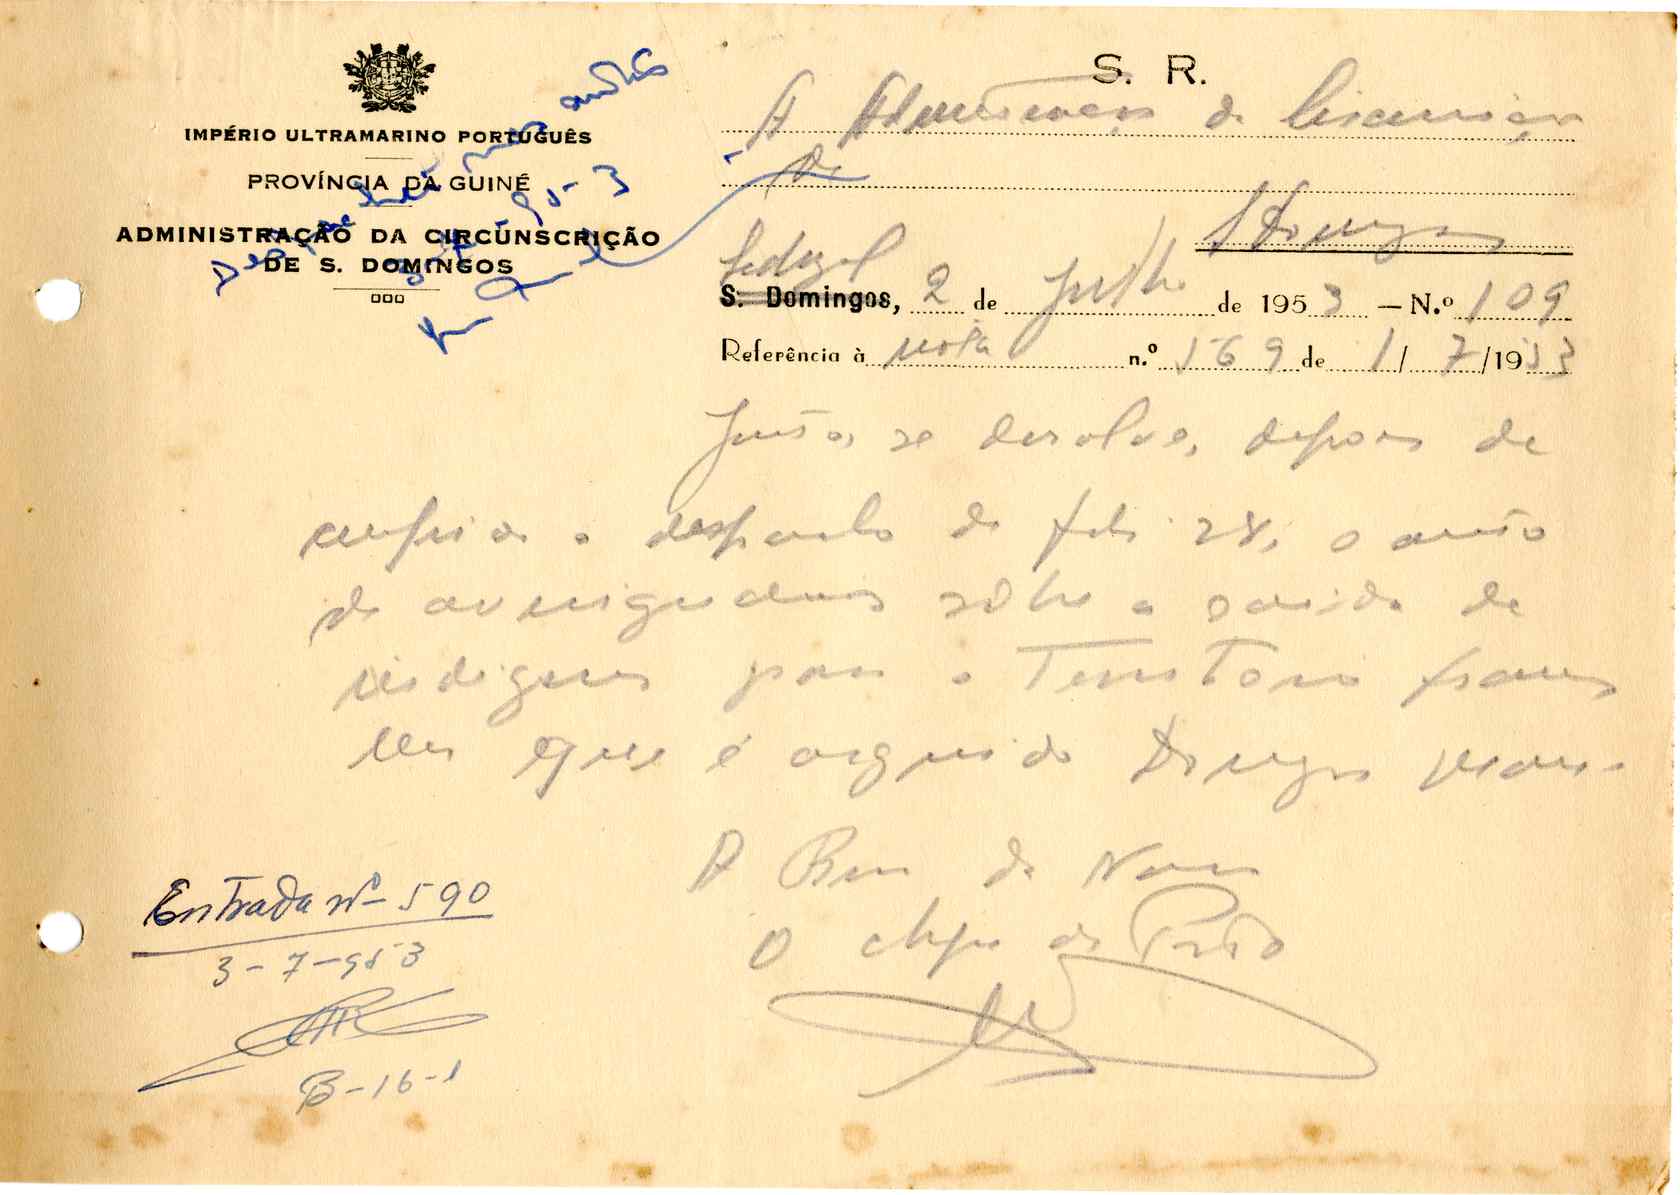 S. R.
IMPÉRIO ULTRAMARINO PORTUGUÊS
PROVÍNCIA DA GUINÉ
ADMINISTRAÇÃO DA CIRCUNSCRIÇÃO
DE S. DOMINGOS
A Administração da Circunscrição
de
S. Domingos
S. Domingos, 2 de Julho de 1953 — N.º 109
Referência à nota n.º 569 de 1/7/1953
Junto, se devolve, depois de
cumprido o despacho de fls 28, o auto
de averiguações sôbre a saida de
indigenas para o Território francês
em que é arguido Domingos
A Bem da Nação
O chefe de Posto
Entrada nº 590
3-7-953
B-16-1